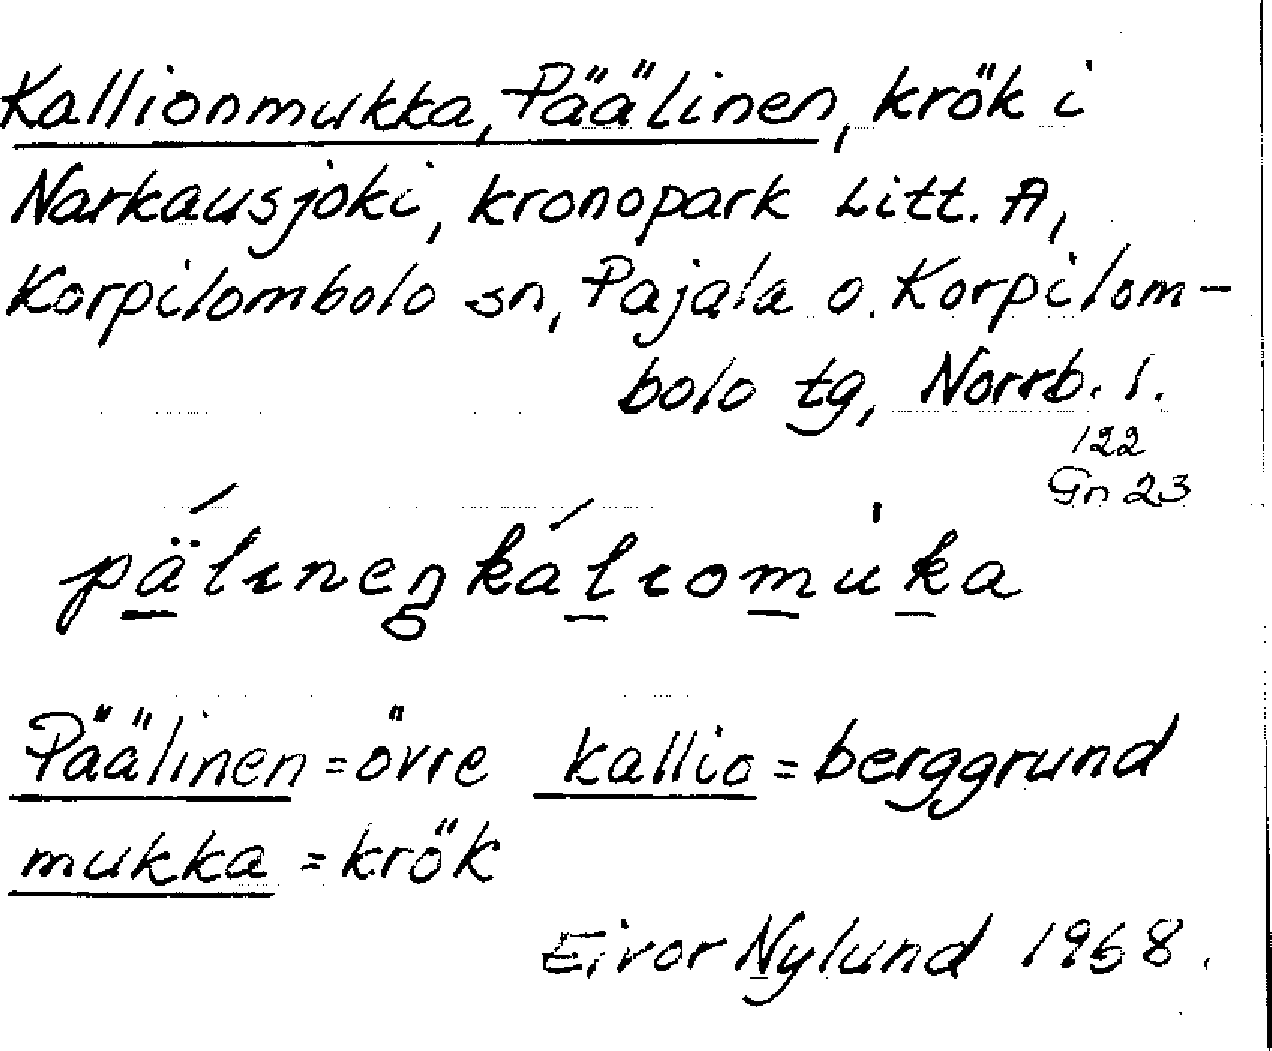 Kallionmukka, Päälinen, krök i
Narkausjoki, kronopark Litt. A,
Korpilombolo sn, Pajala o. Korpilom-
bolo tg, Norrb. l.
122
Gn 23
pä́lıneŋkálıomùka
Päälinen = övre kallio = berggrund
mukka = krök
Eivor Nylund 1968.